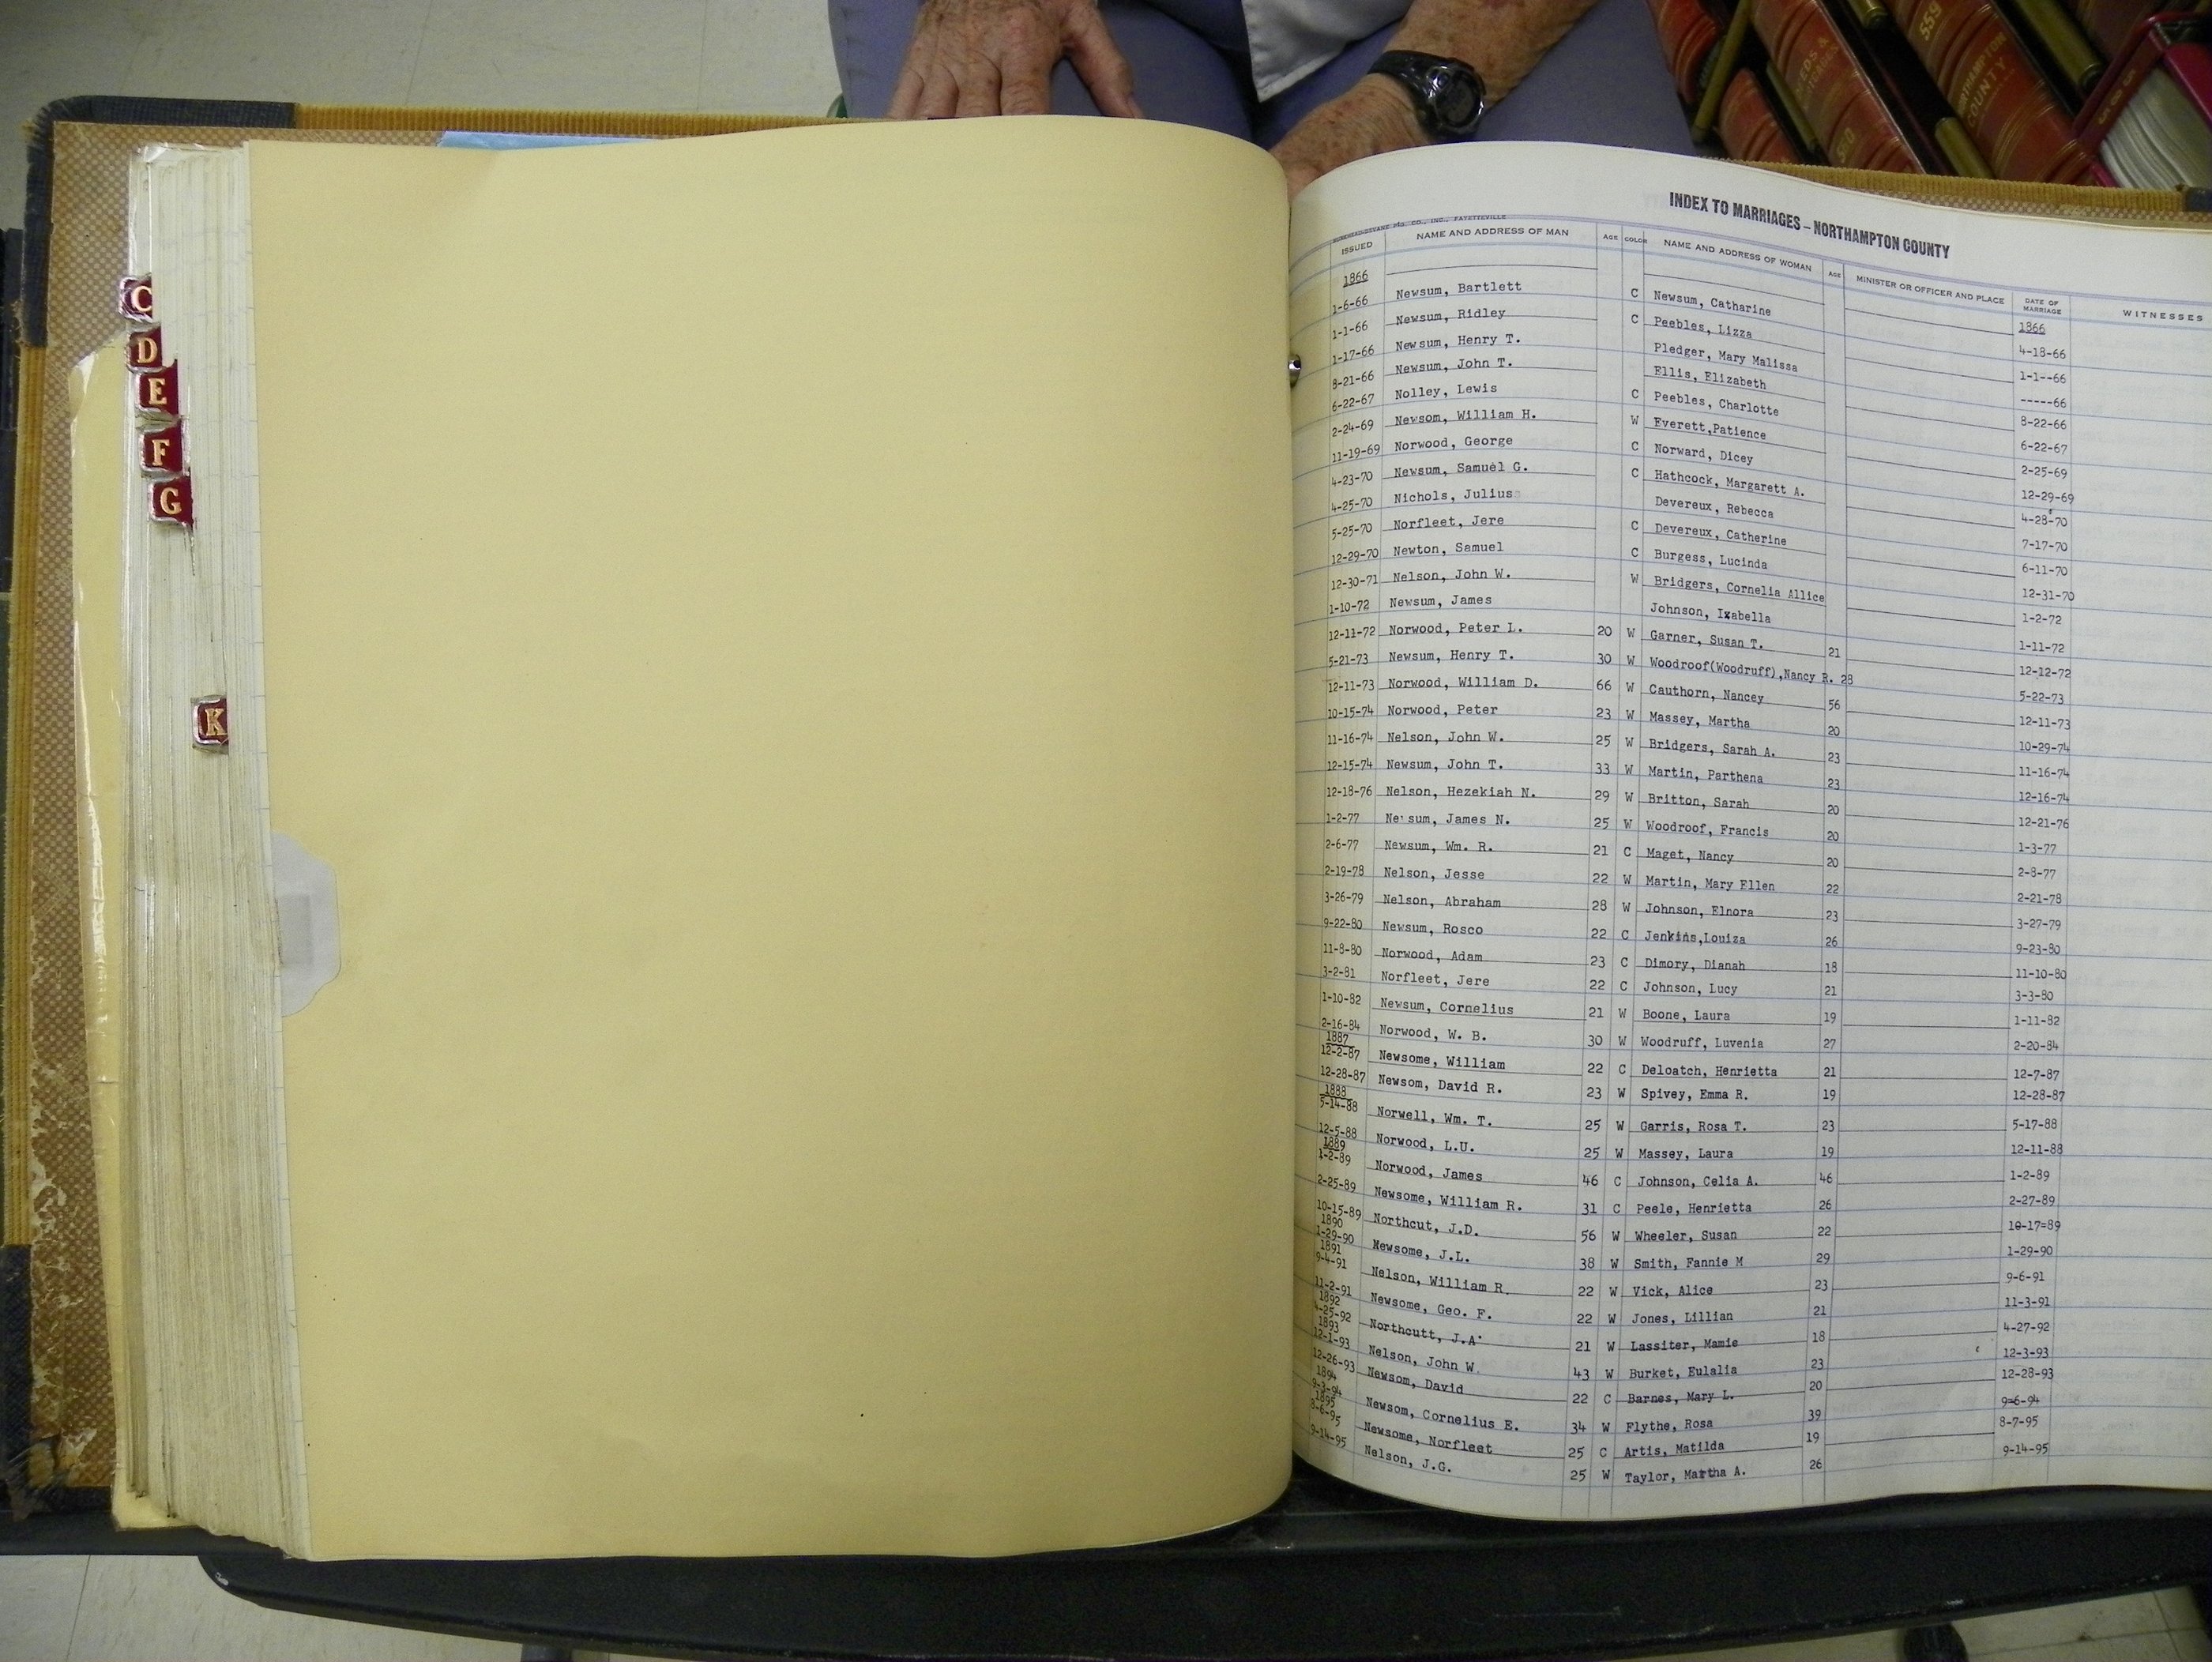 C
D
E
F
G
K
559
NORTHAMPTON
COUNTY
INDEX TO MARRIAGES – NORTHAMPTON COUNTY
CO., INC., FAYETTEVILLE
ISSUED NAME AND ADDRESS OF MAN AGE COLOR NAME AND ADDRESS OF WOMAN AGE MINISTER OR OFFICER AND PLACE DATE OF MARRIAGE WITNESSES
1866 1866
1-6-66 Newsum, Bartlett C Newsum, Catharine 4-18-66
1-1-66 Newsum, Ridley C Peebles, Lizza 1-1--66
1-17-66 Newsum, Henry T. Pledger, Mary Malissa -----66
8-21-66 Newsum, John T. Ellis, Elizabeth 8-22-66
6-22-67 Nolley, Lewis C Peebles, Charlotte 6-22-67
2-24-69 Newsom, William H. W Everett,Patience 2-25-69
11-19-69 Norwood, George C Norward, Dicey 12-29-69
4-23-70 Newsum, Samuel G. C Hathcock, Margarett A. 4-28-70
4-25-70 Nichols, Julius Devereux, Rebecca 7-17-70
5-25-70 Norfleet, Jere C Devereux, Catherine 6-11-70
12-29-70 Newton, Samuel C Burgess, Lucinda 12-31-70
12-30-71 Nelson, John W. W Bridgers, Cornelia Allice 1-2-72
1-10-72 Newsum, James Johnson, Ixabella 1-11-72
12-11-72 Norwood, Peter L. 20 W Garner, Susan T. 21 12-12-72
5-21-73 Newsum, Henry T. 30 W Woodroof(Woodruff),Nancy R. 28 5-22-73
12-11-73 Norwood, William D. 66 W Cauthorn, Nancey 56 12-11-73
10-15-74 Norwood, Peter 23 W Massey, Martha 20 10-29-74
11-16-74 Nelson, John W. 25 W Bridgers, Sarah A. 23 11-16-74
12-15-74 Newsum, John T. 33 W Martin, Parthena 23 12-16-74
12-18-76 Nelson, Hezekiah N. 29 W Britton, Sarah 20 12-21-76
1-2-77 Ne'sum, James N. 25 W Woodroof, Francis 20 1-3-77
2-6-77 Newsum, Wm. R. 21 C Maget, Nancy 20 2-8-77
2-19-78 Nelson, Jesse 22 W Martin, Mary Ellen 22 2-21-78
3-26-79 Nelson, Abraham 28 W Johnson, Elnora 23 3-27-79
9-22-80 Newsum, Rosco 22 C Jenkins,Louiza 26 9-23-80
11-8-80 Norwood, Adam 23 C Dimory, Dianah 18 11-10-80
3-2-81 Norfleet, Jere 22 C Johnson, Lucy 21 3-3-80
1-10-82 Newsum, Cornelius 21 W Boone, Laura 19 1-11-82
2-16-84 Norwood, W. B. 30 W Woodruff, Luvenia 27 2-20-84
1887
12-2-87 Newsome, William 22 C Deloatch, Henrietta 21 12-7-87
12-28-87 Newsom, David R. 23 W Spivey, Emma R. 19 12-28-87
1888
5-14-88 Norwell, Wm. T. 25 W Garris, Rosa T. 23 5-17-88
12-5-88 Norwood, L.U. 25 W Massey, Laura 19 12-11-88
1889
1-2-89 Norwood, James 46 C Johnson, Celia A. 46 1-2-89
2-25-89 Newsome, William R. 31 C Peele, Henrietta 26 2-27-89
10-15-89 Northcut, J.D. 56 W Wheeler, Susan 22 10-17=89
1890
1-29-90 Newsome, J.L. 38 W Smith, Fannie M 29 1-29-90
1891
9-4-91 Nelson, William R. 22 W Vick, Alice 23 9-6-91
11-2-91 Newsome, Geo. F. 22 W Jones, Lillian 21 11-3-91
1892
4-25-92 Northcutt, J.A. 21 W Lassiter, Mamie 18 4-27-92
1893
12-1-93 Nelson, John W. 43 W Burket, Eulalia 23 12-3-93
12-26-93 Newsom, David 22 C Barnes, Mary L. 20 12-28-93
1894
9-3-94 Newsom, Cornelius E. 34 W Flythe, Rosa 39 9=6-94
1895
8-6-95 Newsome, Norfleet 25 C Artis, Matilda 19 8-7-95
9-14-95 Nelson, J.G. 25 W Taylor, Martha A. 26 9-14-95